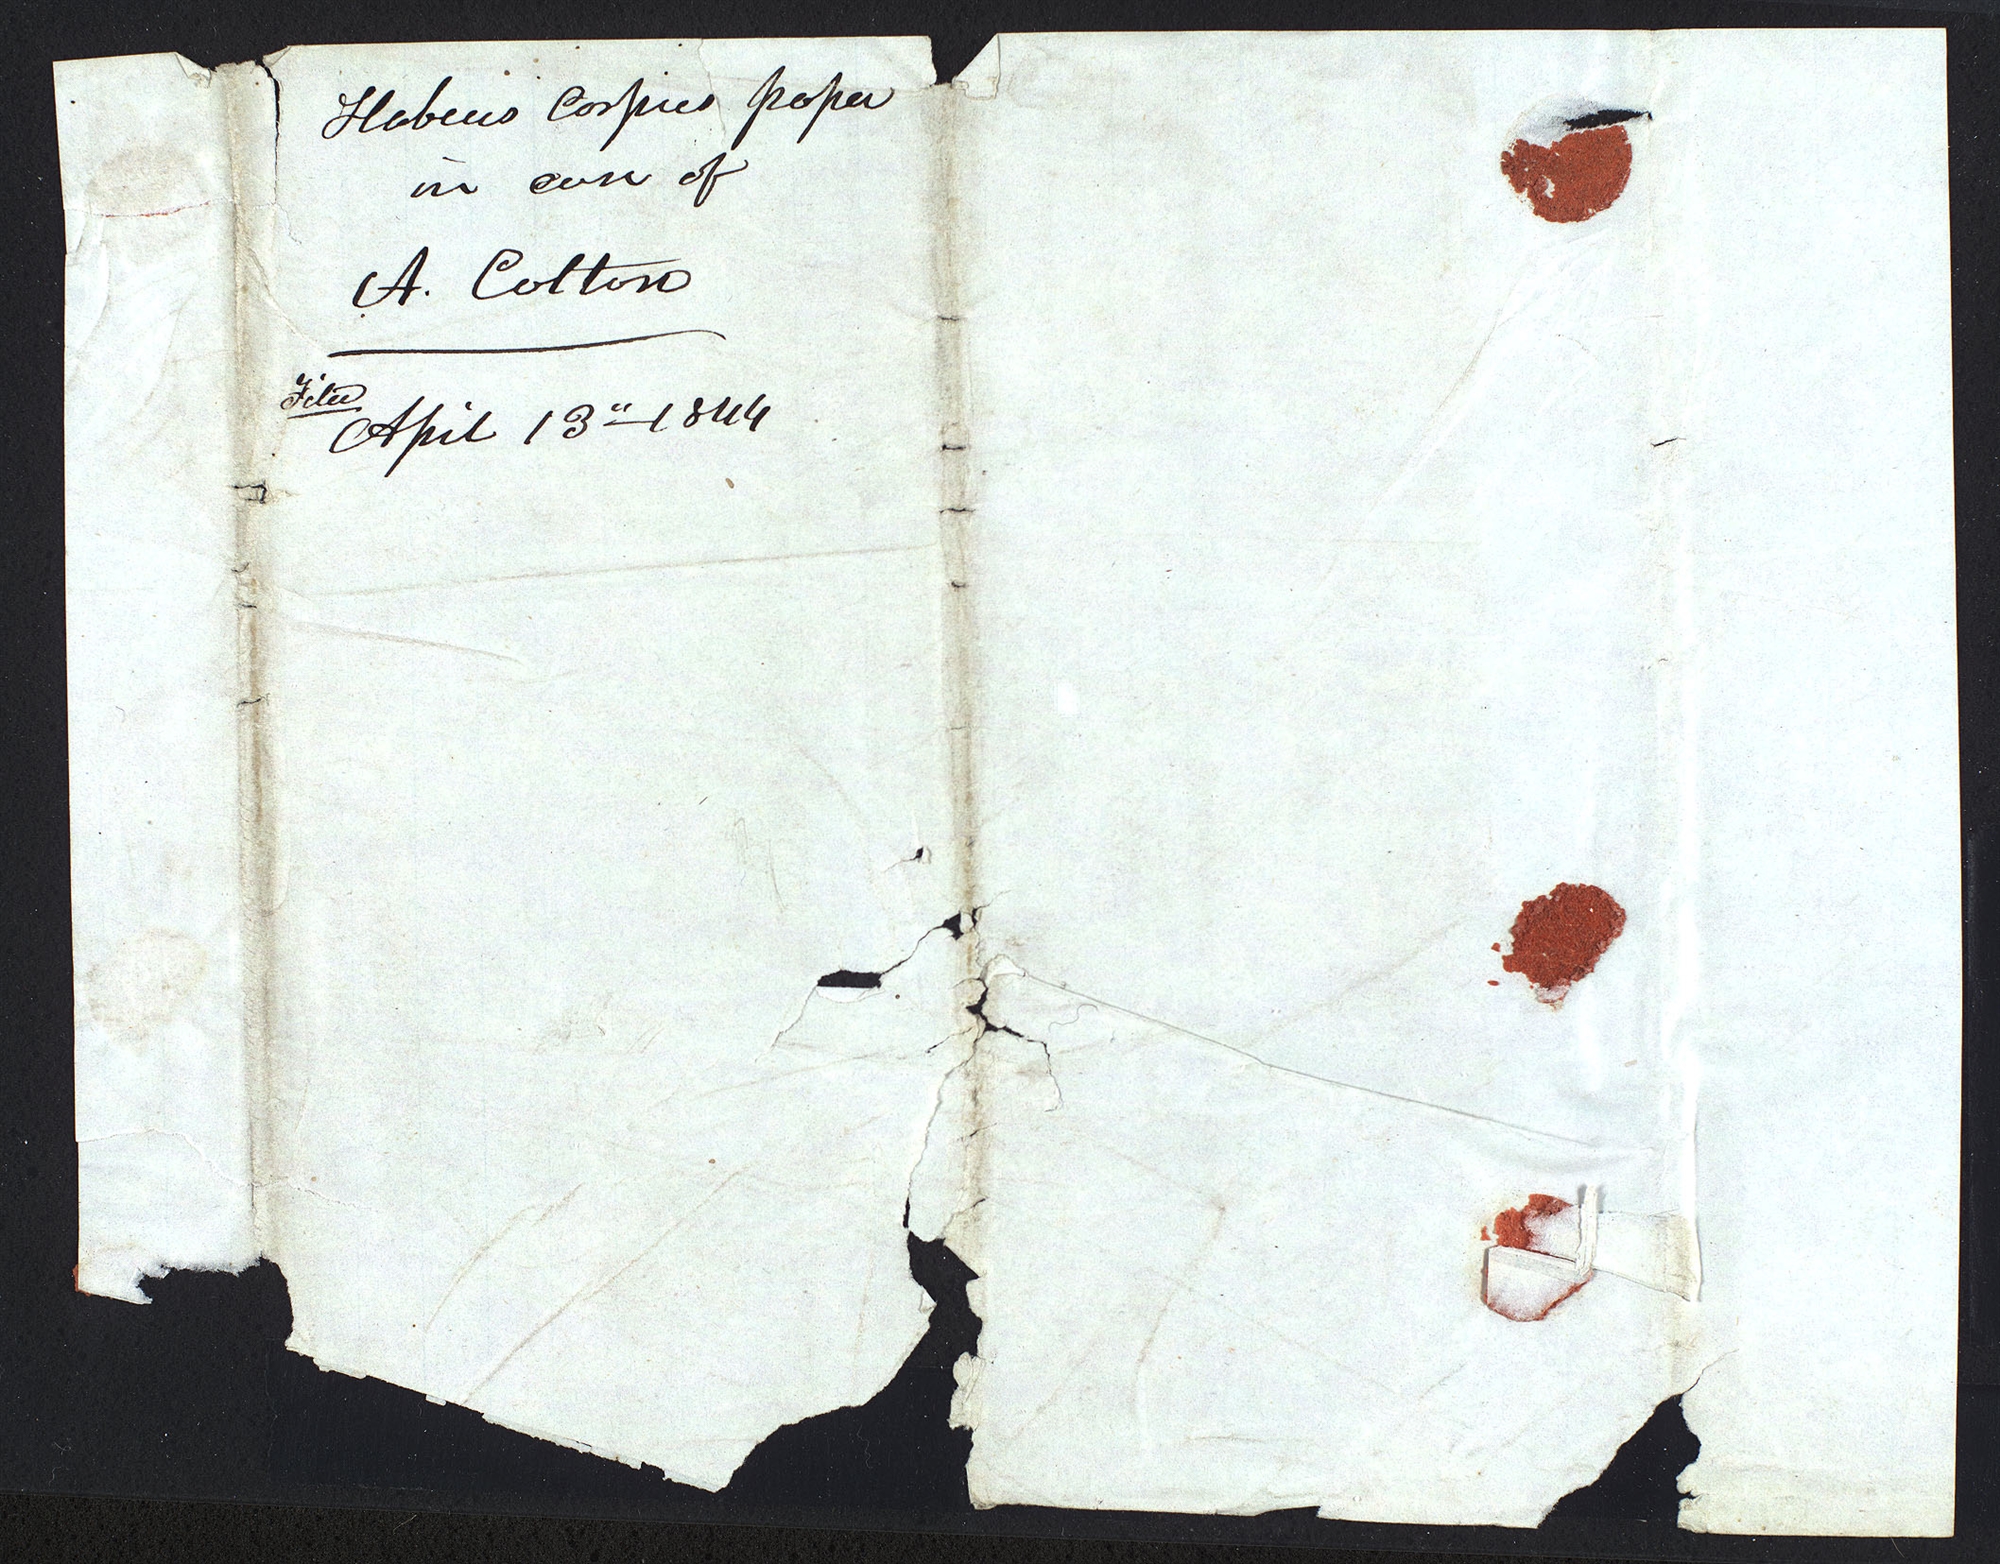 Habeus Corpus paper
in case of
A. Colton
Filed
April 13" 1844